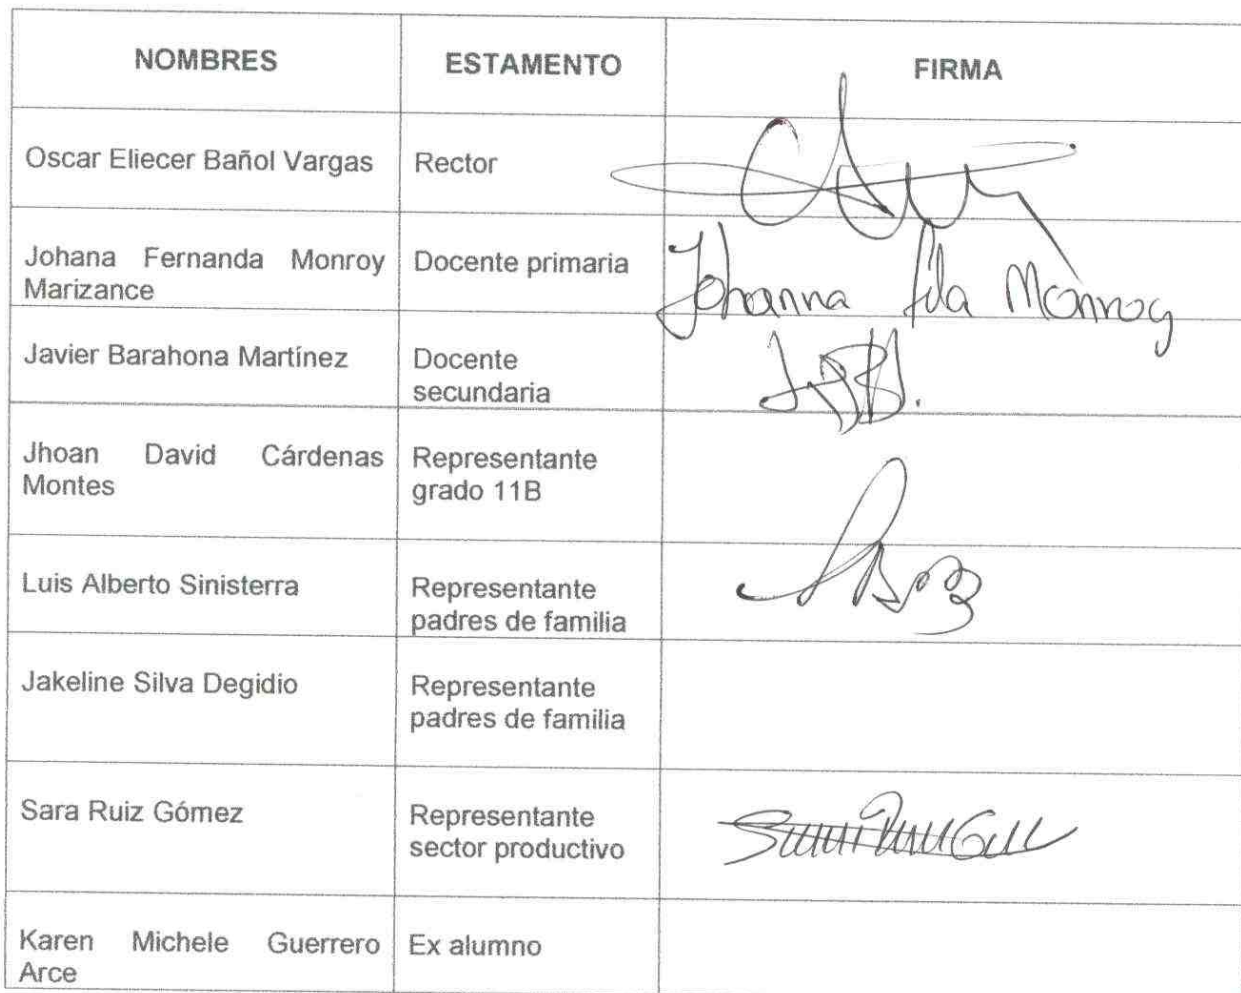 NOMBRES ESTAMENTO FIRMA
Oscar Eliecer Bañol Vargas Rector
Johana Fernanda Monroy Docente primaria
Marizance
Johanna Monroy
Javier Barahona Martínez Docente
secundaria
Jhoan David Cárdenas Representante
Montes grado 11B
Luis Alberto Sinisterra Representante
padres de familia
Jakeline Silva Degidio Representante
padres de familia
Sara Ruiz Gómez Representante
sector productivo
Karen Michele Guerrero Ex alumno
Arce